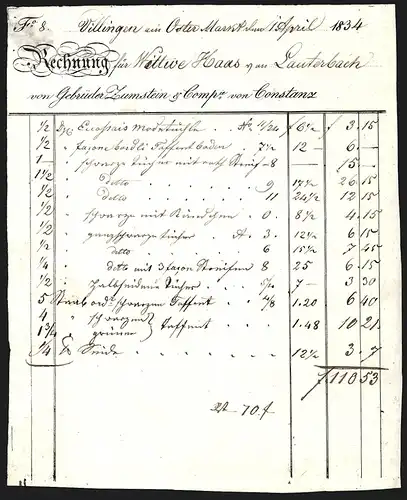 Fo 8. Villingen am Oster Markt den 1 April 1834
Rechnung für Wittwe Haas von Lauterbach
von Gebrüder Zumstein & Compie von Constanz
1/2 Dz Ecossais No 4/24 f 6 1/2 f 3.15
1/2 " façone Taffent boden 7 1/2 12 — 6 —
1 " schwarze tücher mit Streif 8 15 —
1 1/2 " detto 9 17 1/2 26 15
1/2 " detto 11 24 1/2 12 15
1/2 " schwarze mit 0. 8 1/2 4.15
1/2 " ganzschwarze tücher A 3. 12 1/2 6 15
1/2 " detto 6 15 1/2 7 45
1/4 " detto mit 3 façon Streifen 8 25 6.15
1/2 " halbseidene tücher 7 — 3 30
5 Stab schwarzen Taffent 4/8 1.20 6 40
4 " schwarzen
1 3/4 " grünen Taffent 1.48 10 21
1/4 Seide 12 1/2 3.7
f 110 53
70 f